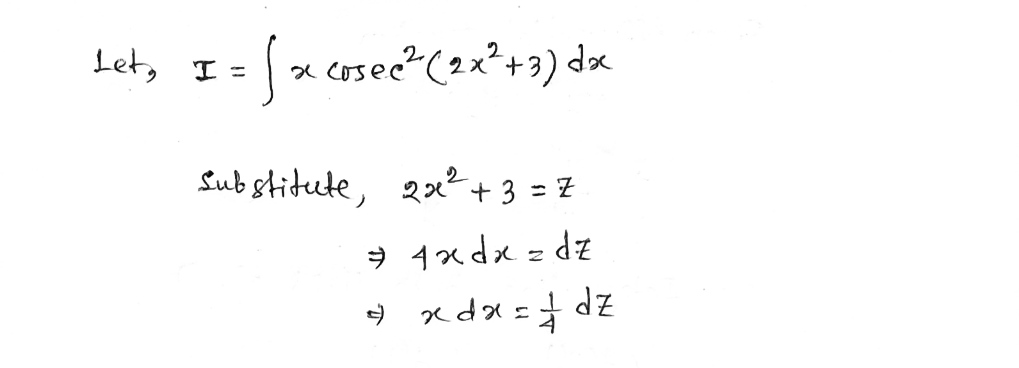 Let, I = ∫ x cosec²(2x²+3) dx
Substitute, 2x² + 3 = z
⇒ 4x dx = dz
⇒ x dx = 1/4 dz